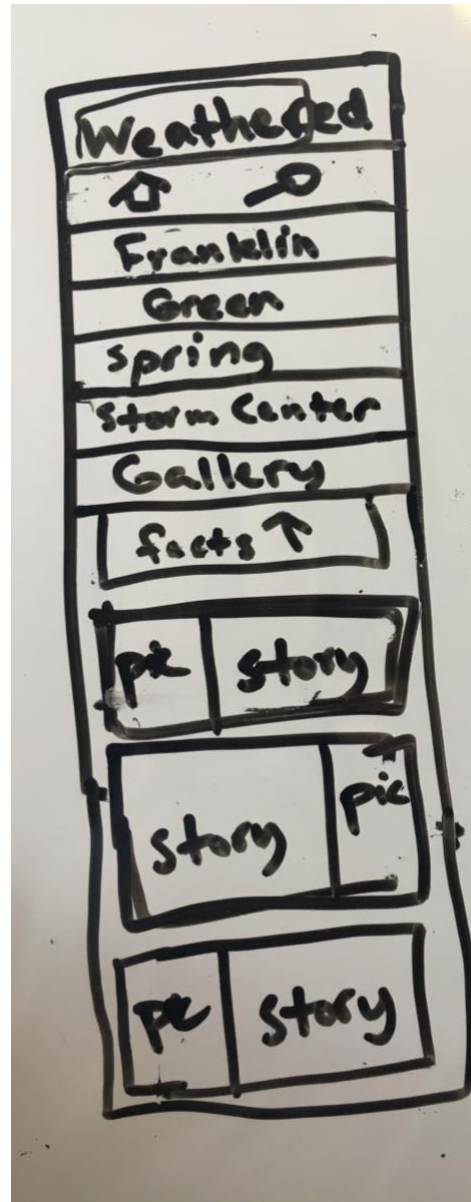 Weathered
Franklin
Green
spring
Storm Center
Gallery
facts ↑
pic story
story pic
pic story